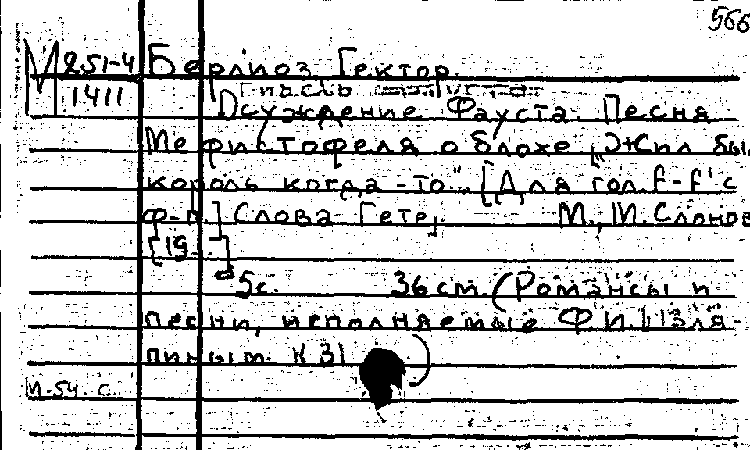 566
М 251-4 Берлиоз, Гектор.
1411
Осуждение Фауста. Песня
Мефистофеля о блохе „Жил был
король когда-то". [Для гол. f-f' с
ф-п.] Слова Гете.     М., И. Слонов
[19  ]
5с.     36 см. (Романсы и
песни, исполняемые Ф.И. Шаля-
пиным. №31    )
И-54. С.